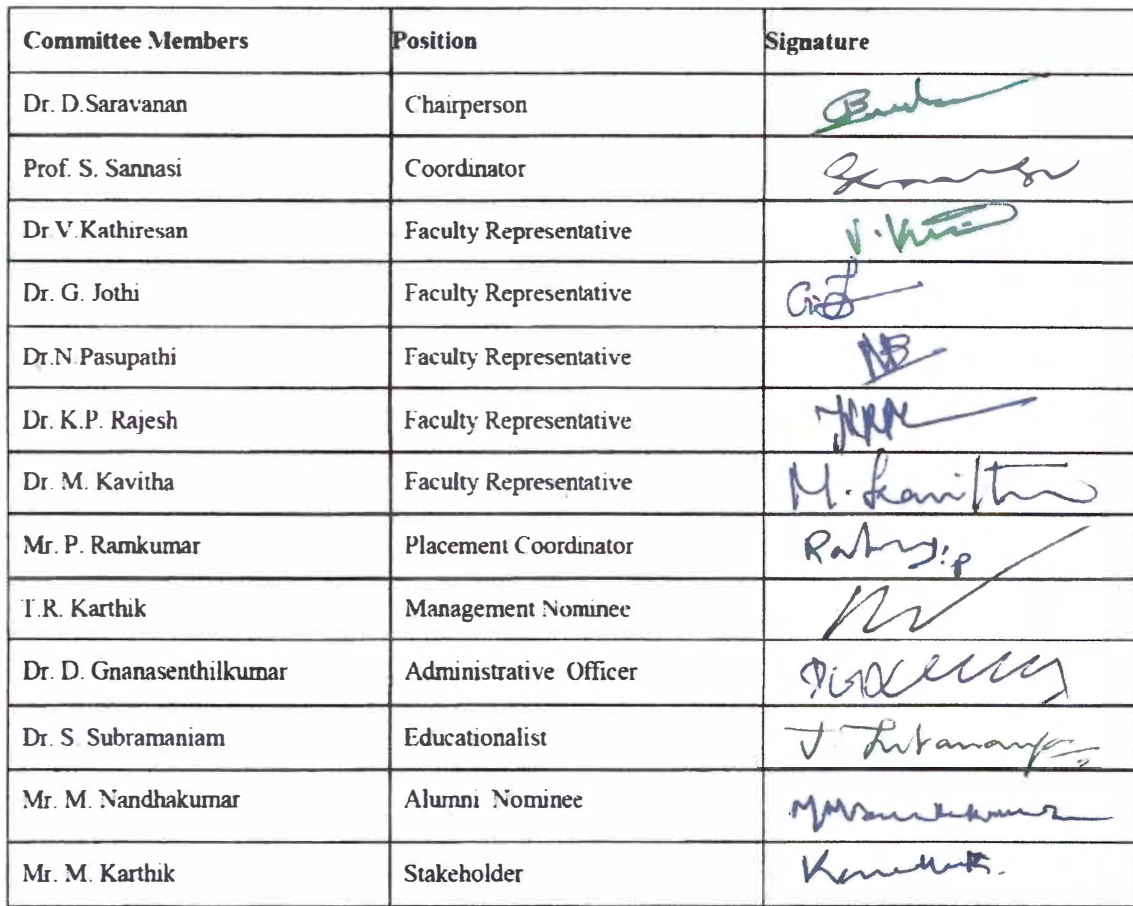 Committee Members Position Signature
Dr. D.Saravanan Chairperson
Prof. S. Sannasi Coordinator
Dr.V.Kathiresan Faculty Representative V.
Dr. G. Jothi Faculty Representative
Dr.N.Pasupathi Faculty Representative
Dr. K.P. Rajesh Faculty Representative
Dr. M. Kavitha Faculty Representative M. Kavitha
Mr. P. Ramkumar Placement Coordinator
T.R. Karthik Management Nominee
Dr. D. Gnanasenthilkumar Administrative Officer
Dr. S. Subramaniam Educationalist
Mr. M. Nandhakumar Alumni Nominee
Mr. M. Karthik Stakeholder